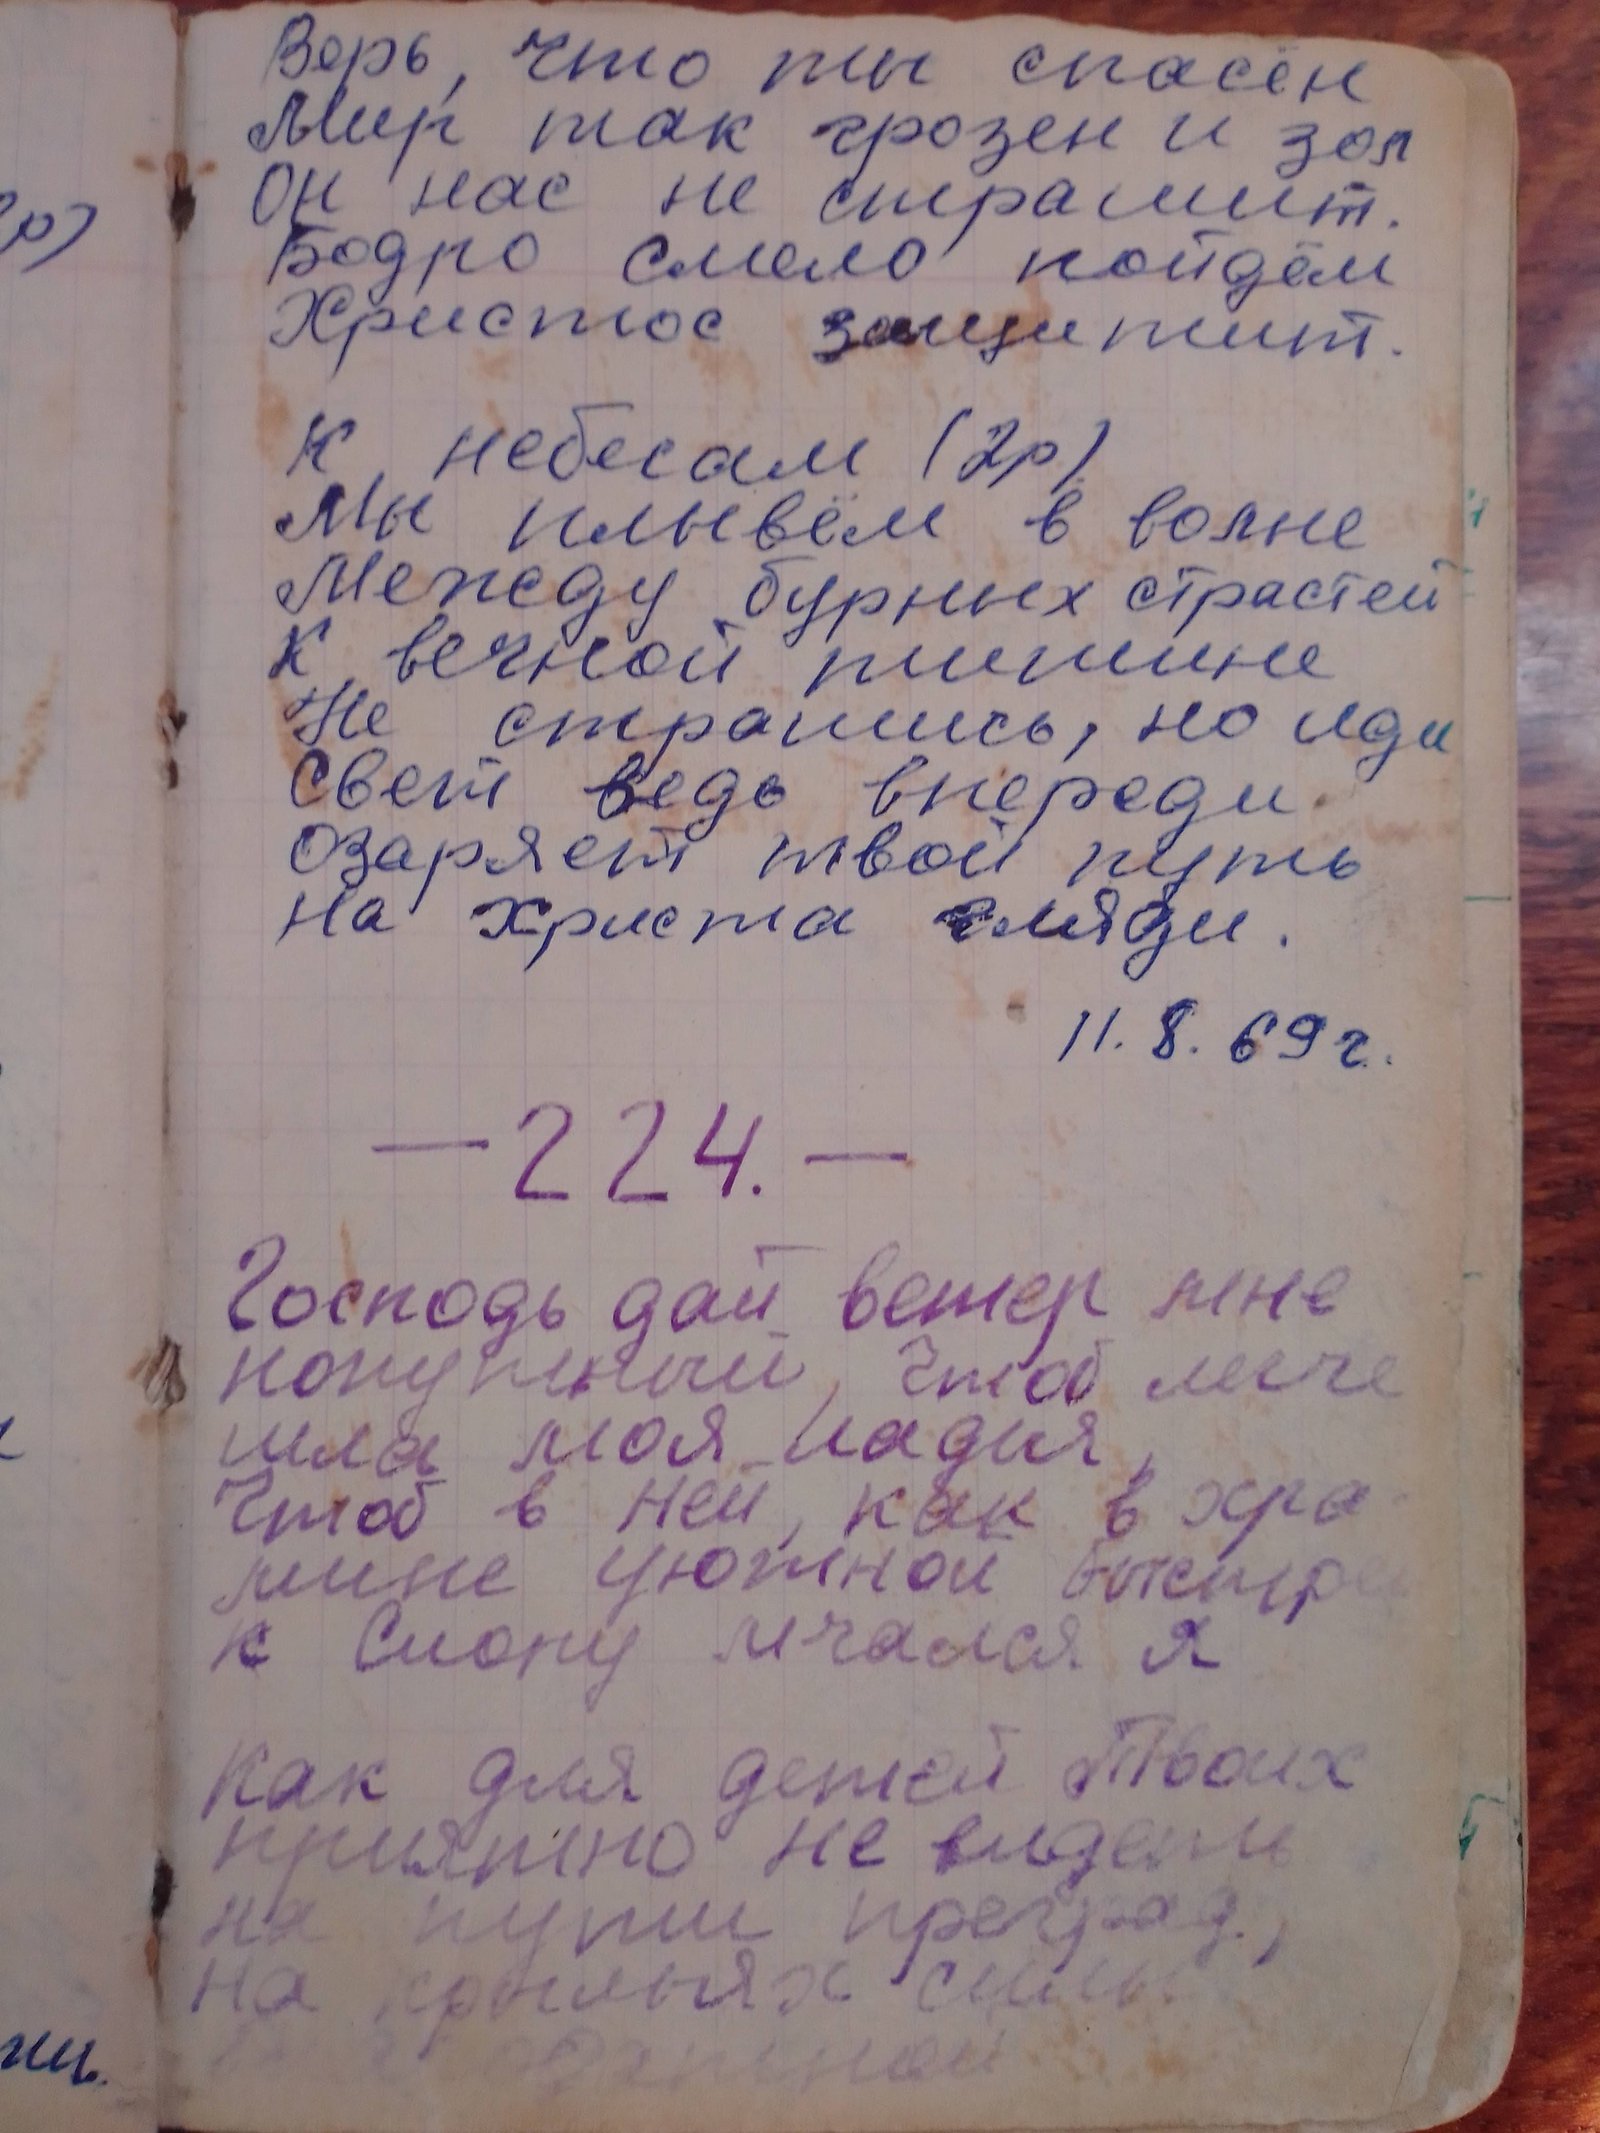 Верь, что ты спасён
Мир так грозен и зол
Он нас не страшит.
Бодро смело пойдём
Христос защитит.
К небесам (2р)
Мы плывём в волне
Между бурных страстей
К вечной тишине
Не страшись, но иди
Свет ведь впереди
Озаряет твой путь
На Христа гляди.
11. 8. 69 г.
— 224. —
Господь дай ветер мне
попутный, Чтоб легче
шла моя ладья,
Чтоб в ней, как в хра-
мине уютной быстрей
к Сиону мчался я
Как для детей Твоих
приятно не видеть
на пути преград,
на крыльях силы